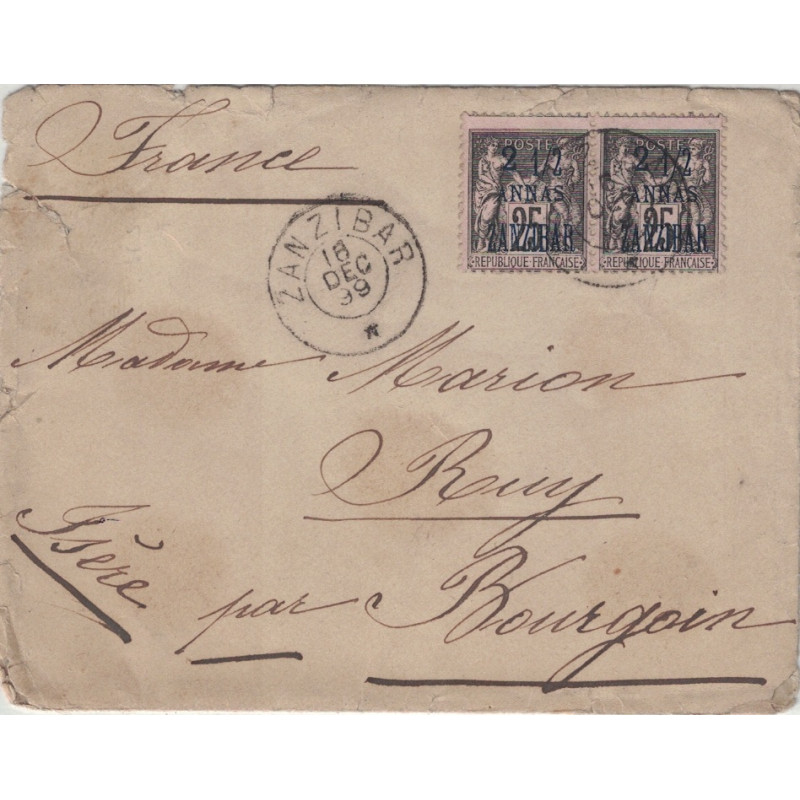 France
POSTE
2 1/2
ANNAS
25
ZANZIBAR
REPUBLIQUE FRANÇAISE
POSTE
2 1/2
ANNAS
25
ZANZIBAR
REPUBLIQUE FRANÇAISE
ZANZIBAR
18
DEC
99
Madame Marion
Ruy
Isère par Bourgoin